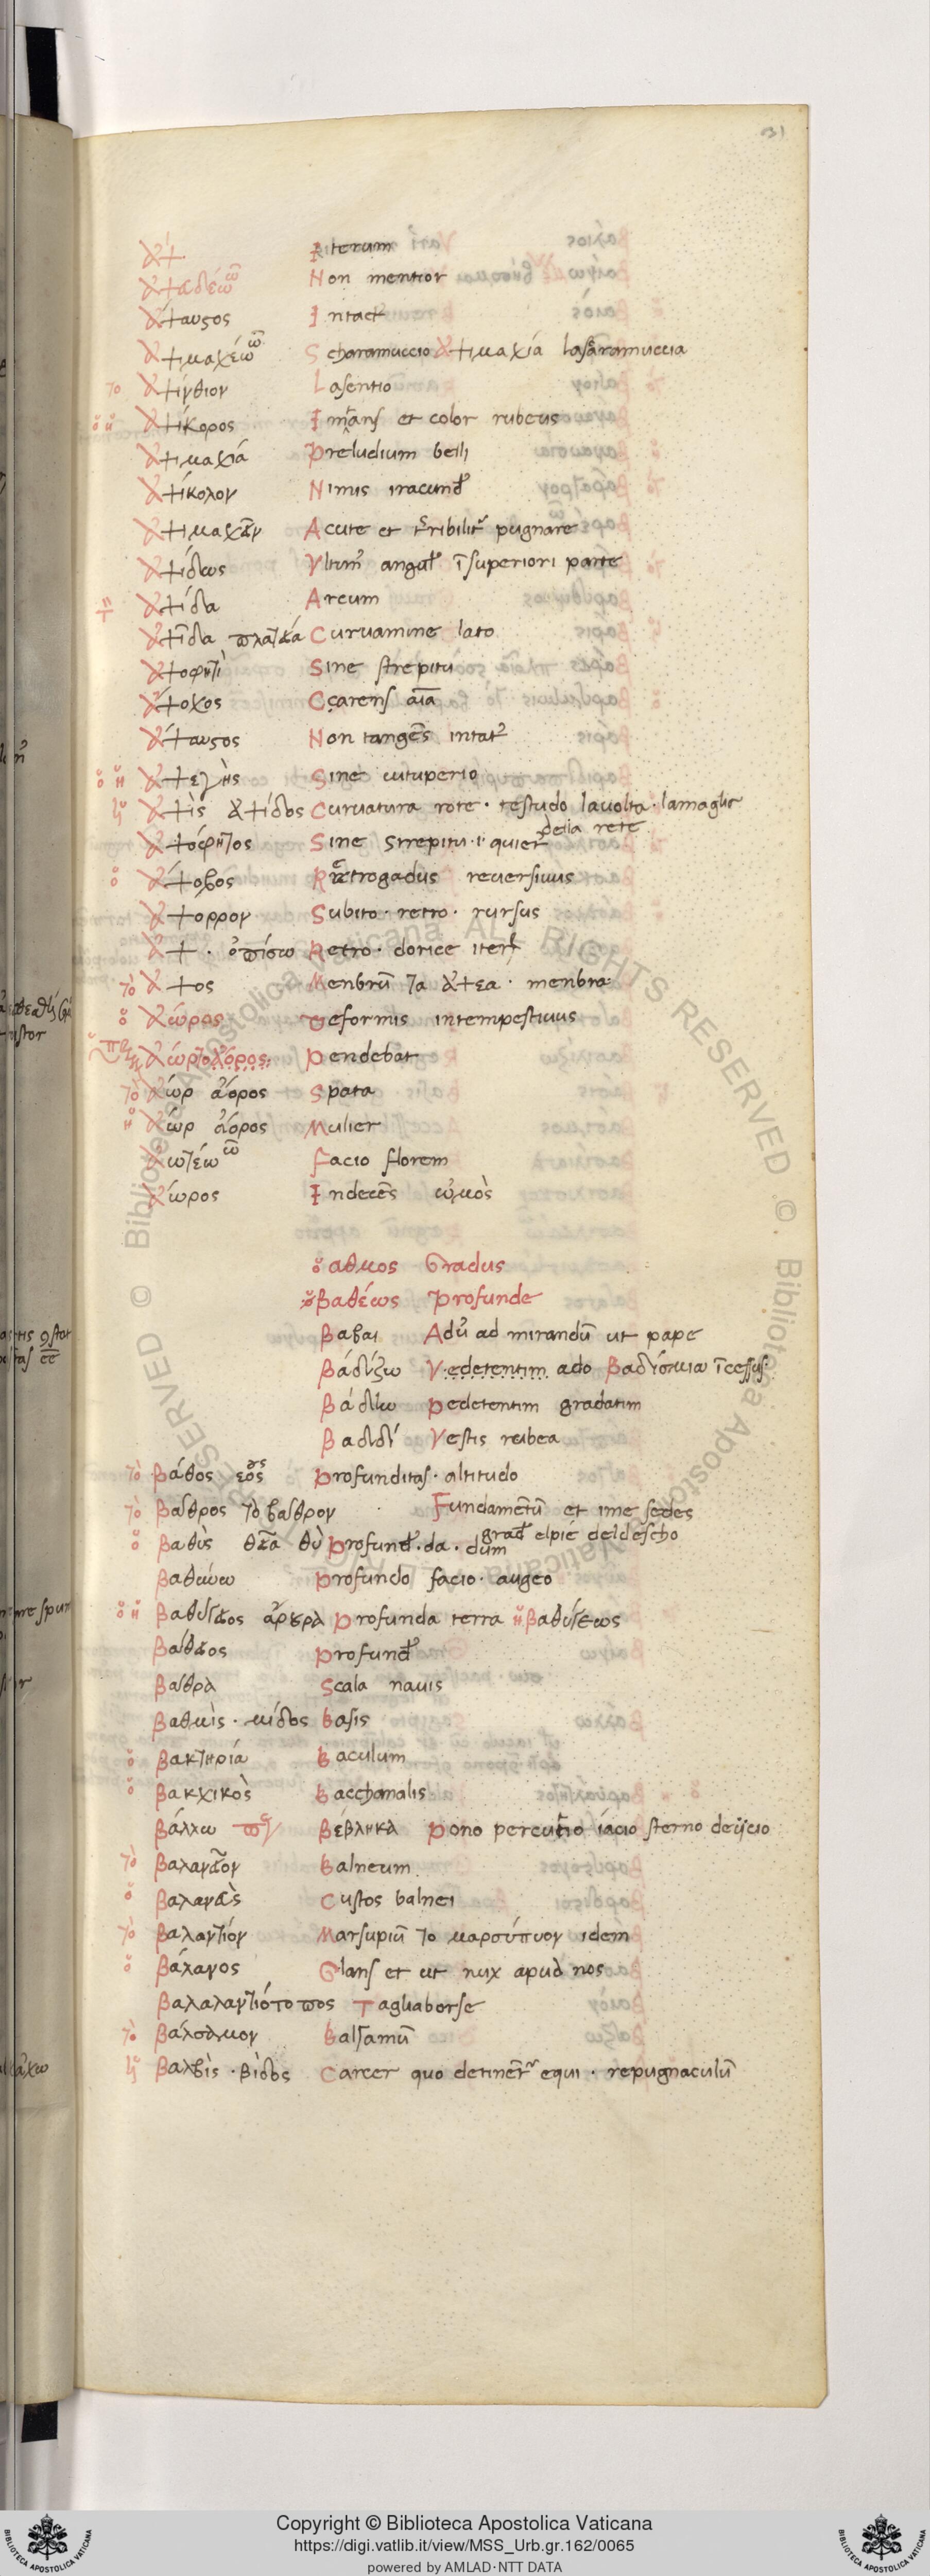 31
ἄψ Iterum
ἀψευδέω ῶ Non mentior
ἄψαυστος Intact
ἀψιμαχέω ῶ Scharamuccio ἀψιμαχία la scaramuccia
το ἀψίνθιον L asentio
ὁ ἡ ἀψίκορος
ἀψιμαχία Preludium belli
ἀψίκολον Nimis iracundꝰ
ἀψιμαχεῖν Acute et terribilitͬ pugnare
ἀψίδως Vltimꝰ ī superiori parte
ἀψίδα Arcum
ἀψῖδα πλατεῖα Curuamine lato
ἀψοφητὶ Sine strepitu
ἄψοχος Ccarens aīa
ἄψαυστος Non tangēs intatꝰ
ὁ ἡ ἀψεγὴς Sine uituperio
ἡ ἀψὶς ἀψίδος Curuatura rote · testudo la uolta · la maglie
della rete
ἀψόφητος Sine strepitu · i · quiete
ὁ ἄψοβος Retrogadus reuersiuus
ἄψορρον Subito · retro · rursus
ἄψ · ὀπίσω Retro · dorice
τὸ ἄψος Menbrū τα ἄψεα · menbra
ὁ ἄωρος Deformis intempestiuus
Pendebat
τὸ ἄωρ ἄορος Spata
ἡ ἄωρ ἄορος Mulier
ἀωτέω ῶ Facio florem
ἄωρος Indecēs ὠμὸς
ὁ βαθμος Gradus
βαθέως Profunde
βαβαι Aduꝰ ad mirandū ut pape
βάδίζω Vedetentim ado
βάδην Pedetentim gradatim
βαδιδί Vestis rubea
τὸ βάθος εος Profunditas · altitudo
τὸ βάθρος τὸ βάθρον Fundamētū et ime sedes
gradꝰ el pie del descho
ὁ βαθὺς θεῖα θὺ Profundꝰ · da · dum
βαθύνω Profundo facio · augeo
ὁ ἡ βαθύγειος ἄρουρα Profunda terra ἡ βαθύγεως
βάθειος Profundꝰ
βάθρα Scala nauis
βαθμὶς · μίδος Basis
ὁ βακτηρία Baculum
ὁ βακχικὸς Bacchanalis
βάλλω βέβληκα Pono percutio iacio sterno deijcio
τὸ βαλανεῖον Balneum
ὁ βαλανεὺς Custos balnei
τὸ βαλαντίον Marsupiū το μαρσύπιον idem
ὁ βάλανος Glans et ut nux apud nos
βαλαλαντιότοπος Tagliaborse
τὸ βάλσαμον Balsamū
ἡ βαλβὶς · βίδος Carcer quo detinētͬ equi · repugnaculū
Copyright © Biblioteca Apostolica Vaticana
https://digi.vatlib.it/view/MSS_Urb.gr.162/0065
powered by AMLAD·NTT DATA